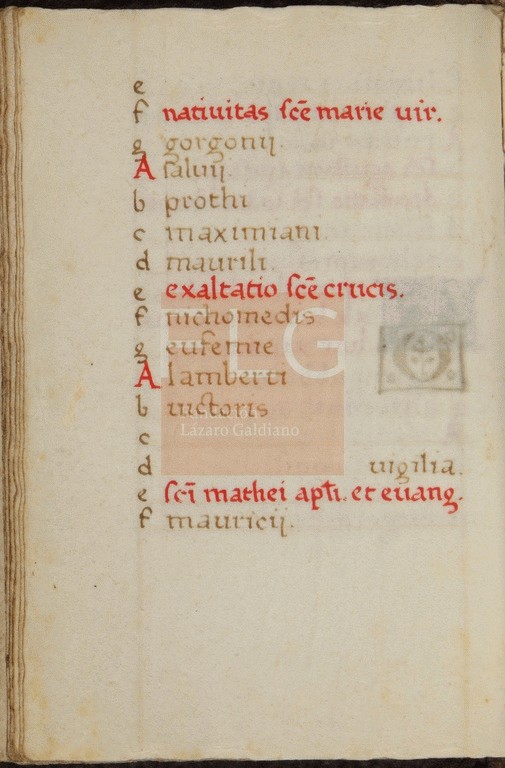 e
f natiuitas scē marie uir.
g gorgonij.
A saluij
b prothi
c maximiani
d maurili.
e exaltatio scē crucis.
f nichomedis
g eufemie
A lamberti
b uictoris
c
d uigilia.
e sci mathei apli. et euang.
f mauricij.
FLG
Lázaro Galdiano